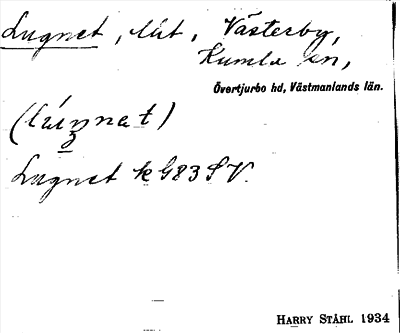 Lugnet, lht, Västerby,
Kumla sn,
Övertjurbo hd, Västmanlands län.
Lugnet k G83 SV.
HARRY STÅHL 1934